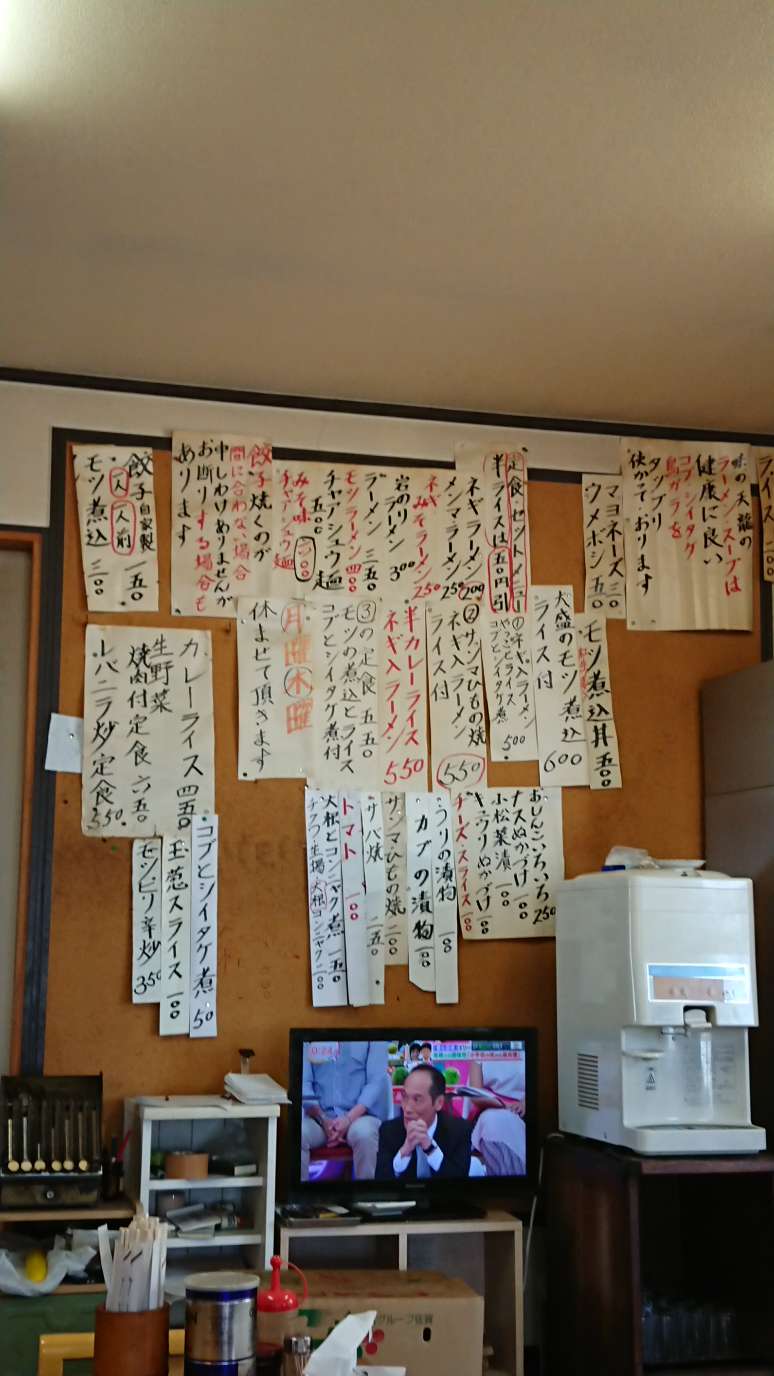 ライス
味の天龍の
ラーメン・スープは
健康に良い
コブシイタケ
鳥ガラを
タップリ
使かっております
マヨネーズ 三〇
ウメボシ 五〇
定食、セットメニュー
半ライスは五〇円引
ネギラーメン 200
メンマラーメン 250
ネギみそラーメン 250
岩のりラーメン 300
ラーメン 三五〇
モツラーメン 四〇〇
チャアシュウ麺
五〇〇
みそ味
チャアシュウ麺
餃子焼くのが
間に合わない場合
申しわけありませんが
お断りする場合も
あります
餃子 自家製 一五〇
一人一人前
モツ煮込 三〇〇
モツ煮込丼 五〇〇
大盛のモツ煮込
ライス付 600
コブとシイタケ煮 500
②サンマひもの焼
ネギ入ラーメン
ライス付 550
半カレーライス
ネギ入ラーメン 550
③の定食 五五〇
モツの煮込とライス
コブとシイタケ煮付
月曜木曜
休ませて頂きます
カレーライス 四五〇
生野菜
焼肉付定食 六五〇
レバニラ炒定食 550
おしんこいろいろ 250
ナスぬかづけ 一〇〇
小松菜漬 一〇〇
キュウリぬかづけ 一〇〇
チーズ・スライス 一〇〇
うりの漬物 一〇〇
カブの漬物 一〇〇
サンマひもの焼 二〇〇
サバ焼 二五〇
トマト 一〇〇
大根とコンニャク煮 一五〇
チクワ・生揚・大根コンニャク 二〇〇
コブとシイタケ煮 50
玉葱スライス 一〇〇
モツピリ辛炒 350
グループ佐賀